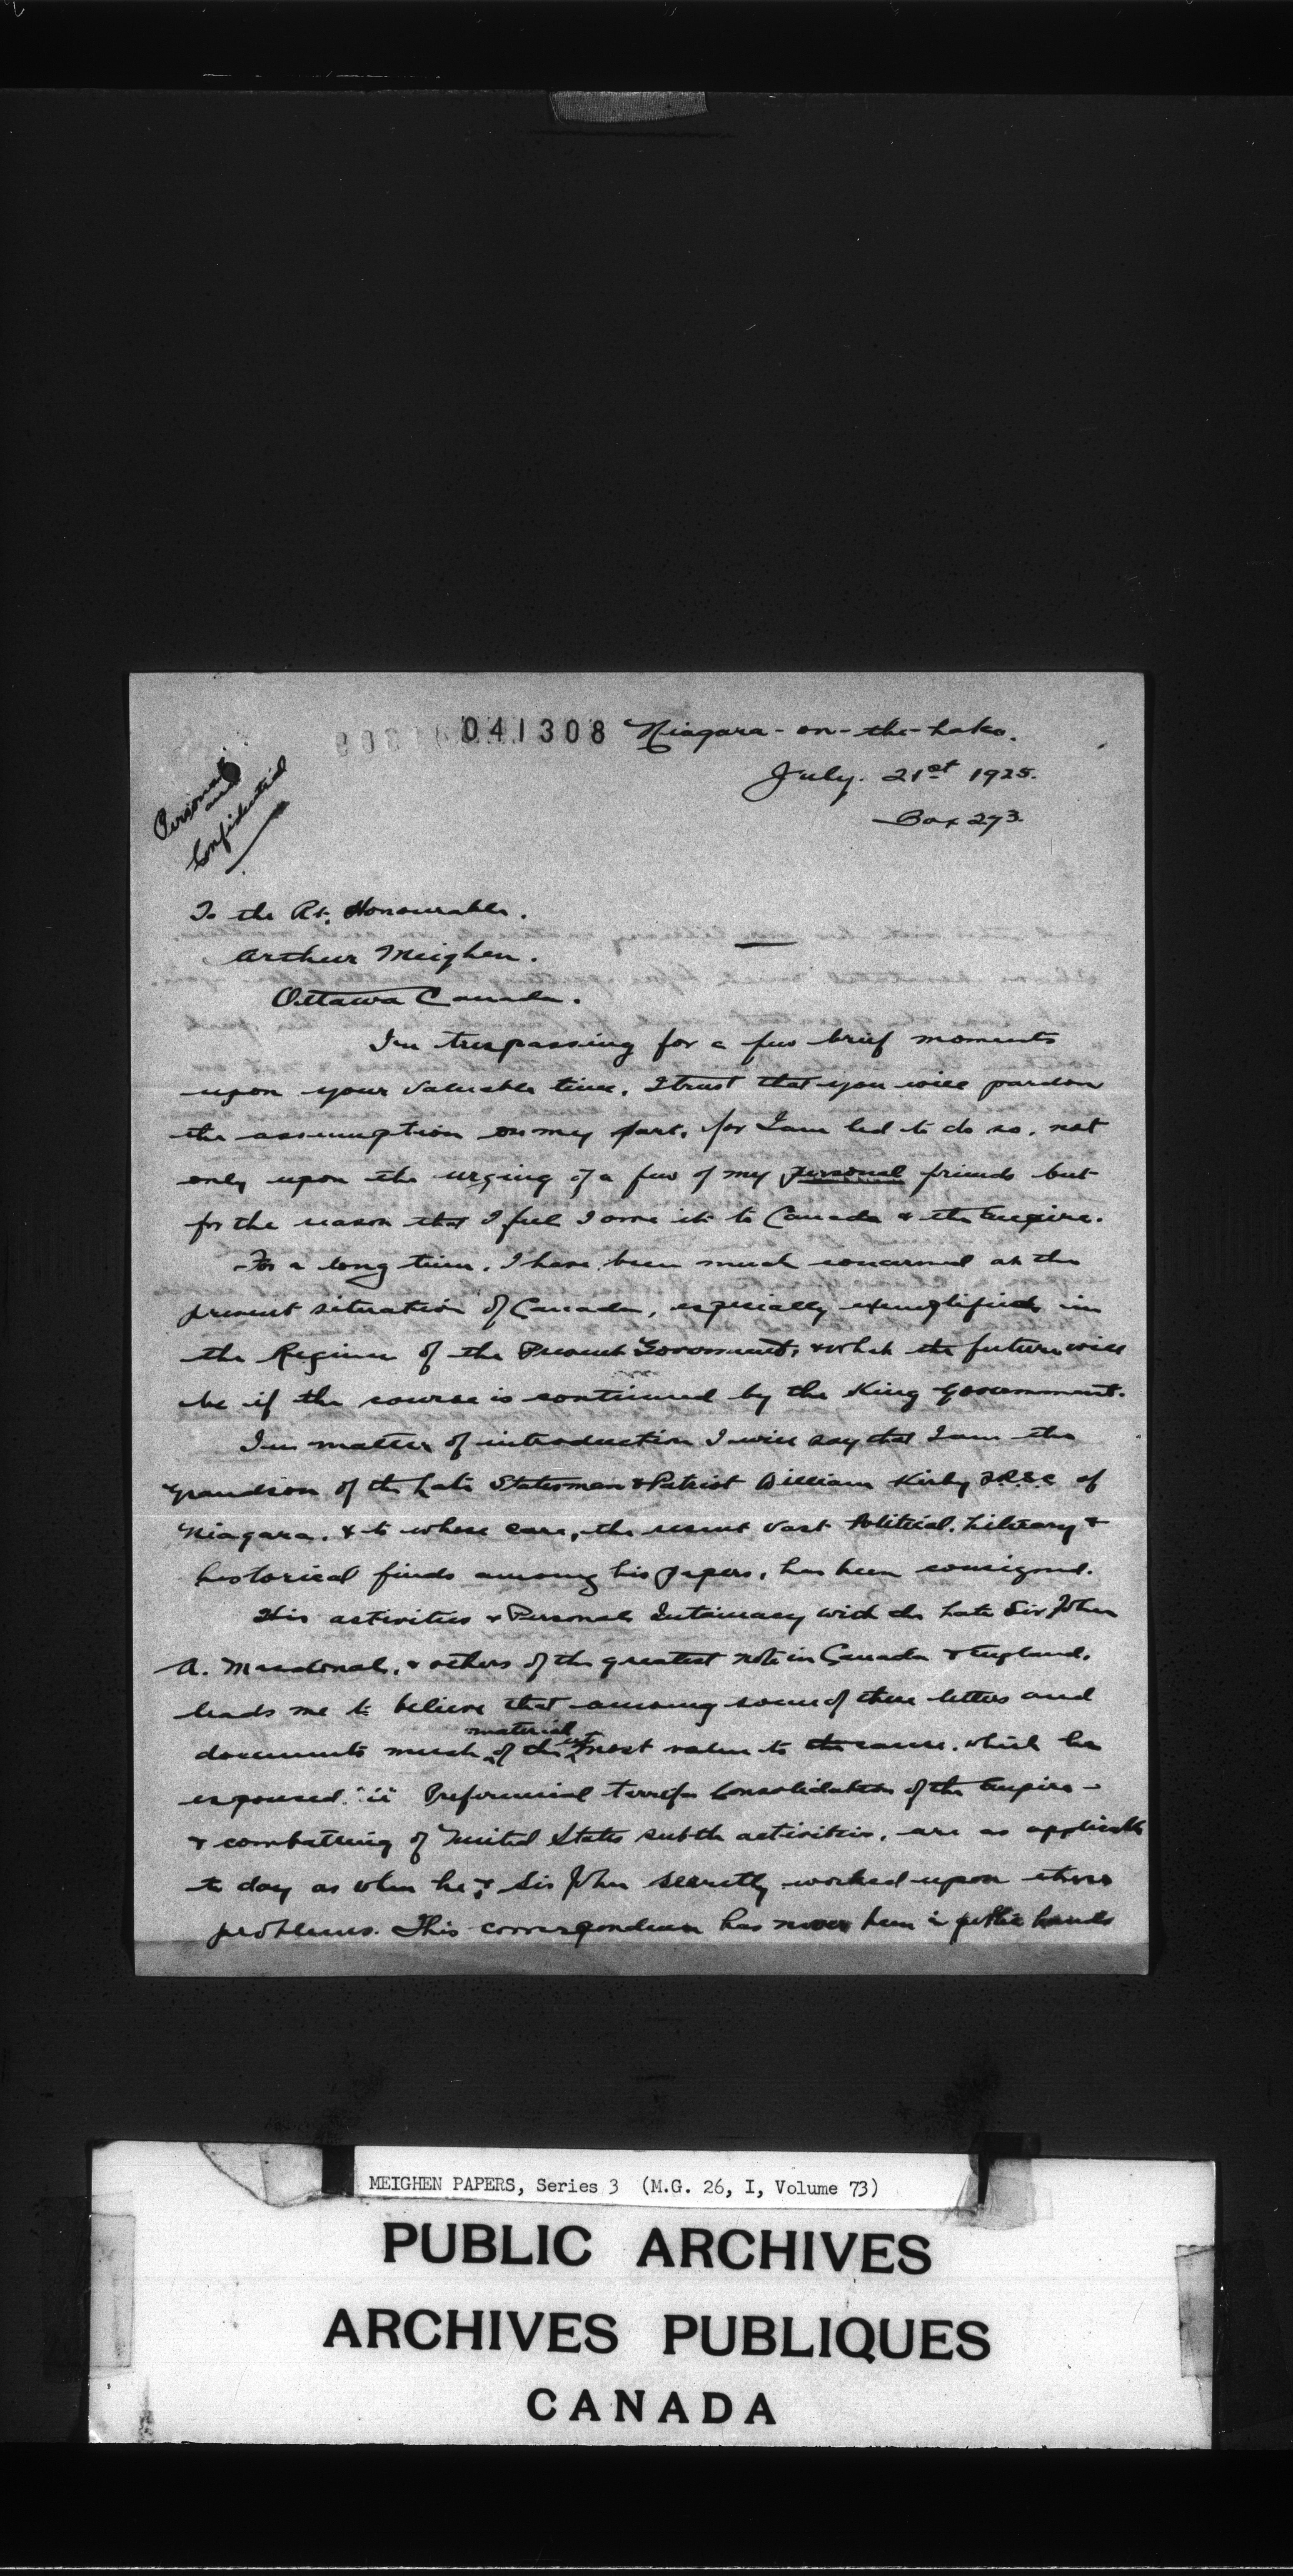 041308 Niagara-on-the-Lake.
July. 21st 1925.
Box 273.
Personal
and
Confidential
To the Rt. Honourable.
Arthur Meighen.
Ottawa Canada.
In trespassing for a few brief moments
upon your valuable time, I trust that you will pardon
the assumption on my part, for I am led to do so, not
only upon the urging of a few of my personal friends but
for the reason that I feel I owe it to Canada & the Empire.
For a long time, I have been much concerned at the
present situation of Canada, especially exemplified in
the Regime of the Present Government, & what the future will
be if the course is continued by the King Government.
In matter of introduction I will say that I am the
grandson of the late Statesman & Patriot William Kirby F.R.S.C of
Niagara, & to whose care, the recent vast Political, Literary &
historical finds among his papers, has been consigned.
His activities & Personal Intimacy with the late Sir John
A. Macdonald, & others of the greatest note in Canada & England,
leads me to believe that among some of these letters and
material
documents much of the utmost value to the cause, which he
espoused. Preferencial Consolidation of the Empire -
& combatting of United States subtle activities, are as applicable
to day as when he & Sir John secretly worked upon these
problems. This correspondence has never been in public hands
MEIGHEN PAPERS, Series 3 (M.G. 26, I, Volume 73)
PUBLIC ARCHIVES
ARCHIVES PUBLIQUES
CANADA